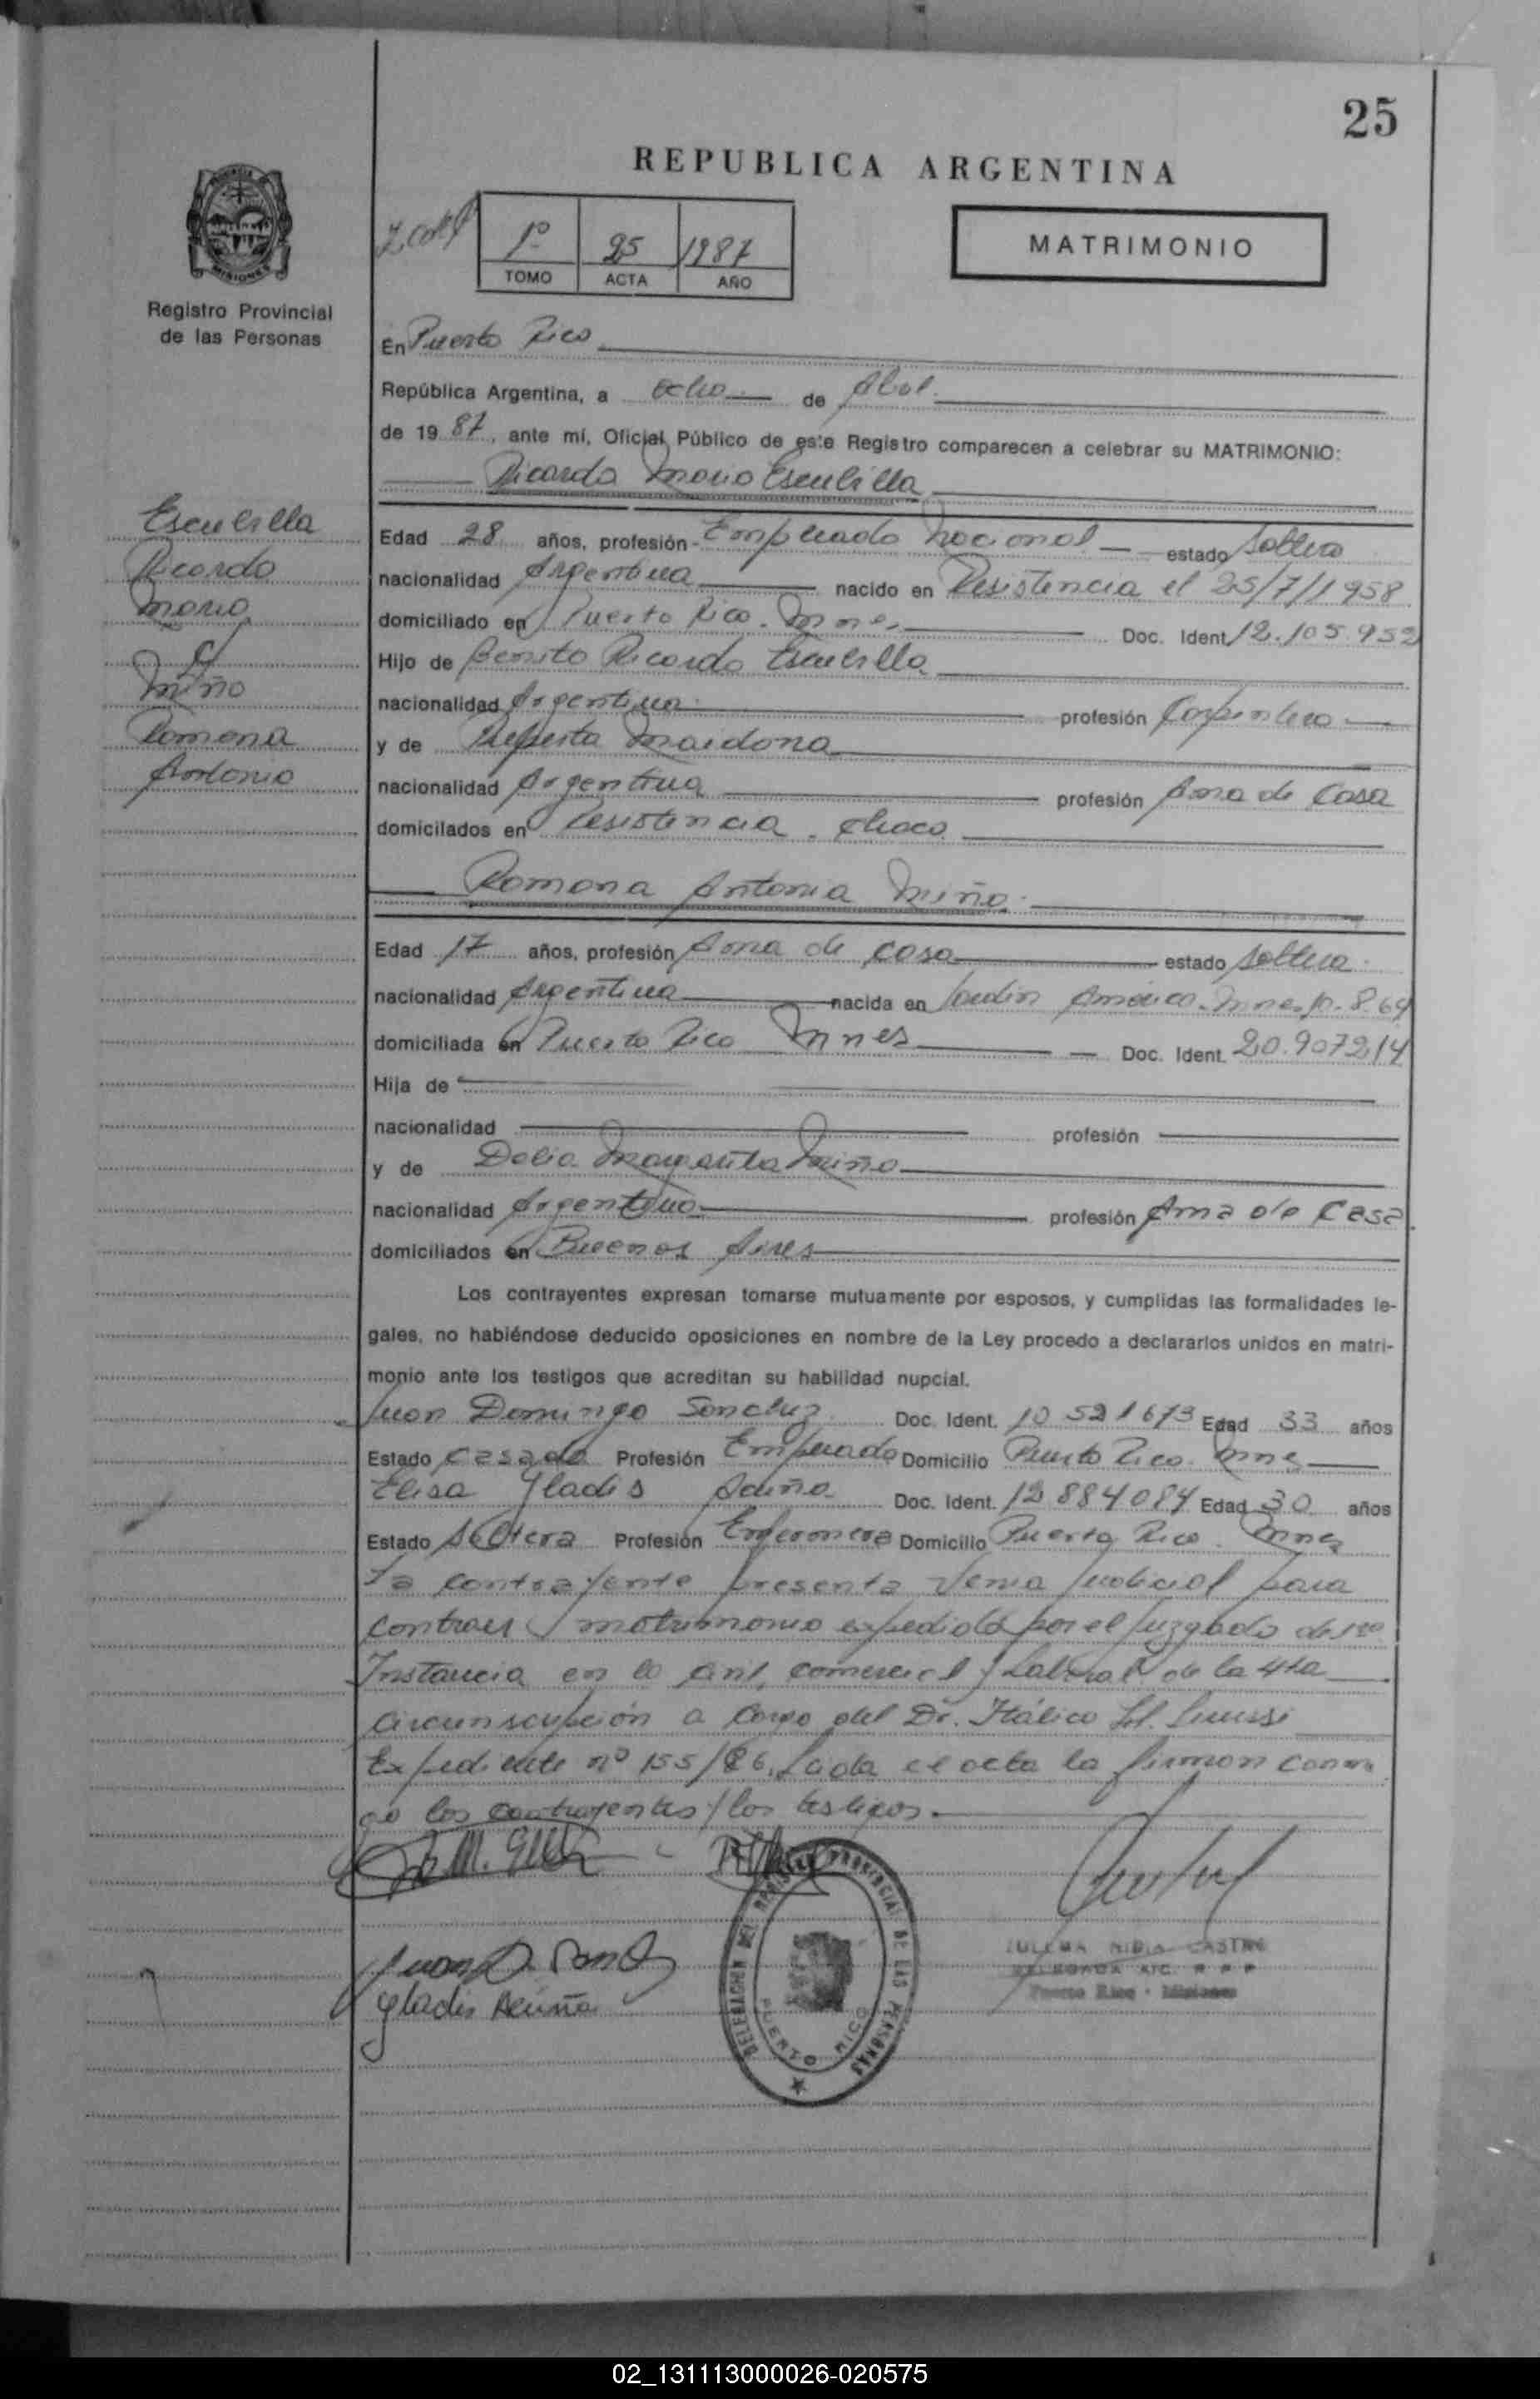 25
REPUBLICA ARGENTINA
1º 25 1987
TOMO ACTA AÑO
MATRIMONIO
Registro Provincial
de las Personas
En Puerto Rico
República Argentina, a ocho de Abril
de 1987, ante mí, Oficial Público de este Registro comparecen a celebrar su MATRIMONIO:
Ricardo Mario Escubilla
Escubilla
Ricardo
Mario
c/
Miño
Ramona
Antonia
Edad 28 años, profesión Empleado Nacional estado Soltero
nacionalidad Argentina nacido en Resistencia el 25/7/1958
domiciliado en Puerto Rico. Mnes. Doc. Ident. 12.105.952
Hijo de Benito Ricardo Escubilla
nacionalidad Argentina profesión Carpintero
y de Maidana
nacionalidad Argentina profesión Ama de Casa
domicilados en Resistencia. Chaco
Ramona Antonia Miño.
Edad 17 años, profesión Ama de casa estado Soltera.
nacionalidad Argentina nacida en Jardín América. Mnes. 10.8.69
domiciliada en Puerto Rico Mnes Doc. Ident. 20.907214
Hija de
nacionalidad profesión
y de Delia Margarita Miño
nacionalidad Argentina profesión Ama de Casa.
domiciliados en Buenos Aires
Los contrayentes expresan tomarse mutuamente por esposos, y cumplidas las formalidades le-
gales, no habiéndose deducido oposiciones en nombre de la Ley procedo a declararlos unidos en matri-
monio ante los testigos que acreditan su habilidad nupcial.
Juan Domingo Sanchez Doc. Ident. 10 521673 Edad 33 años
Estado Casado Profesión Empleado Domicilio Puerto Rico. Mnes
Elisa Gladis Acuña Doc. Ident. 12 884084 Edad 30 años
Estado Soltera Profesión Enfermera Domicilio Puerto Rico. Mnes
La contrayente presenta Venia Judicial para
contraer matrimonio expedida por el Juzgado de 1ra
Instancia en lo Civil, comercial y Laboral de la 4ta
circunscripción a cargo del Dr. Itálico
Expediente nº 155/86. Leida el acta la firman conmi
go los contrayentes y los testigos.
Juan D. Sanch
Gladis Acuña
DELEGACION DEL REGISTRO PROVINCIAL DE LAS PERSONAS
PUERTO RICO
ZULEMA NIDIA CASTRO
Puerto Rico - Misiones
02_131113000026-020575